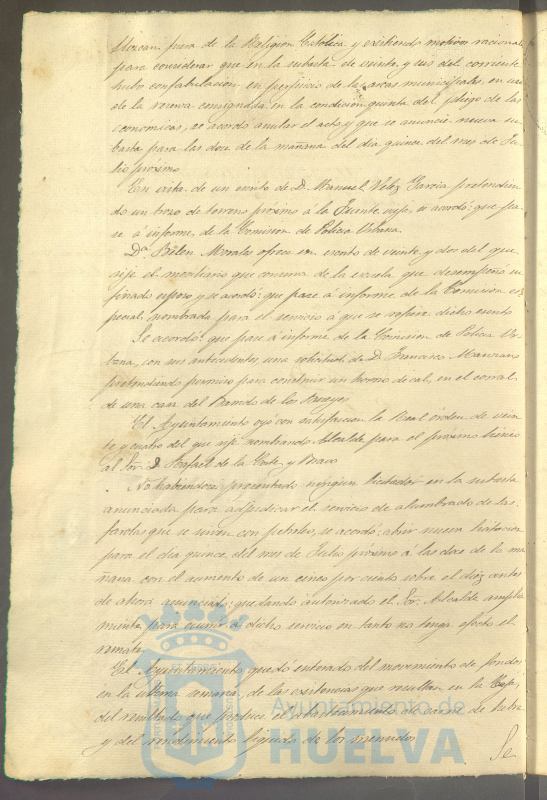 fuera de la Religion Católica y existiendo motivos racional
para considerar que en la subasta de veinte y seis del corriente
hubo confabulacion en perjuicio de las arcas municipales, en uso
de la reserva consignada en la condicion quinta del pliego de las
economicas, se acordó anular el acto y que se anuncie nueva su-
basta para las doce de la mañana del dia quince del mes de Ju-
lio próximo.
En vista de un escrito de D. Manuel Velez Garcia pretendien-
do un trozo de terreno próximo á la Fuente vieja, se acordó: que pa-
se á informe de la Comision de Policia Urbana.
Dª Belen Morales ofrece en escrito de veinte y dos del que
rije el mobiliario que conserva de la escuela que desempeñó su
finado esposo y se acordó: que pase á informe de la Comision es-
pecial nombrada para el servicio á que se refiere dicho escrito
Se acordó: que pase á informe de la Comision de Policia Ur-
bana, con sus antecedentes, una solicitud de D. Francisco Manzano
pretendiendo permiso para construir un horno de cal, en el corral
de una casa del
El Ayuntamiento oyó con satisfaccion la Real orden de vein-
te y cuatro del que rije nombrando Alcalde para el próximo bienio
al Sor. D. Rafael de la Corte y Bravo
No habiéndose presentado ningun licitador en la subasta
anunciada para adjudicar el servicio de alumbrado de las
farolas que se sirven con petroleo, se acordó: abrir nueva licitacion
para el dia quince del mes de Julio próximo á las doce de la ma-
ñana con el aumento de un cinco por ciento sobre el diez antes
de ahora anunciado; quedando autorizado el Sor. Alcalde amplia-
mente para á dicho servicio en tanto no tenga efecto el
remate.
El Ayuntamiento quedó enterado del movimiento de fondos
en la última semana, de las existencias que resultan en la Caja,
del resultado que produce el abastecimiento de carne de
y del rendimiento líquido de los menudos
Se
Ayuntamiento de
HUELVA